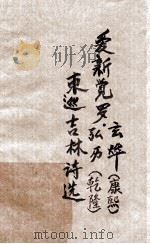 愛新觉罗
玄烨(康熙)
弘历(乾隆)
東巡吉林诗选